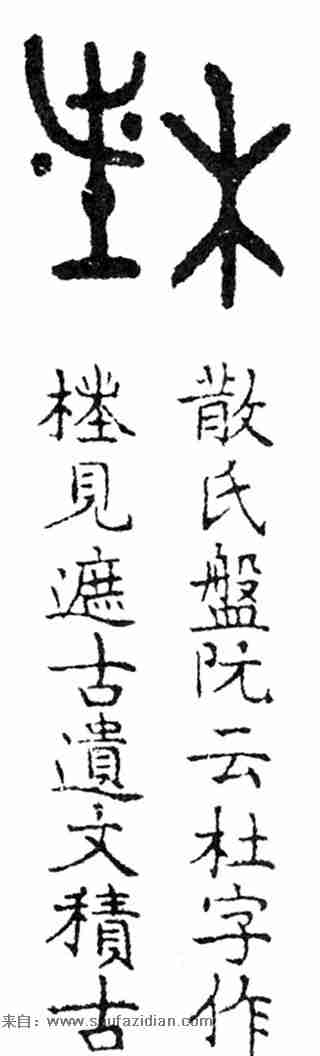 散氏盤阮云杜字作
𣘘見遮古遺文積古
来自：www.shufazidian.com